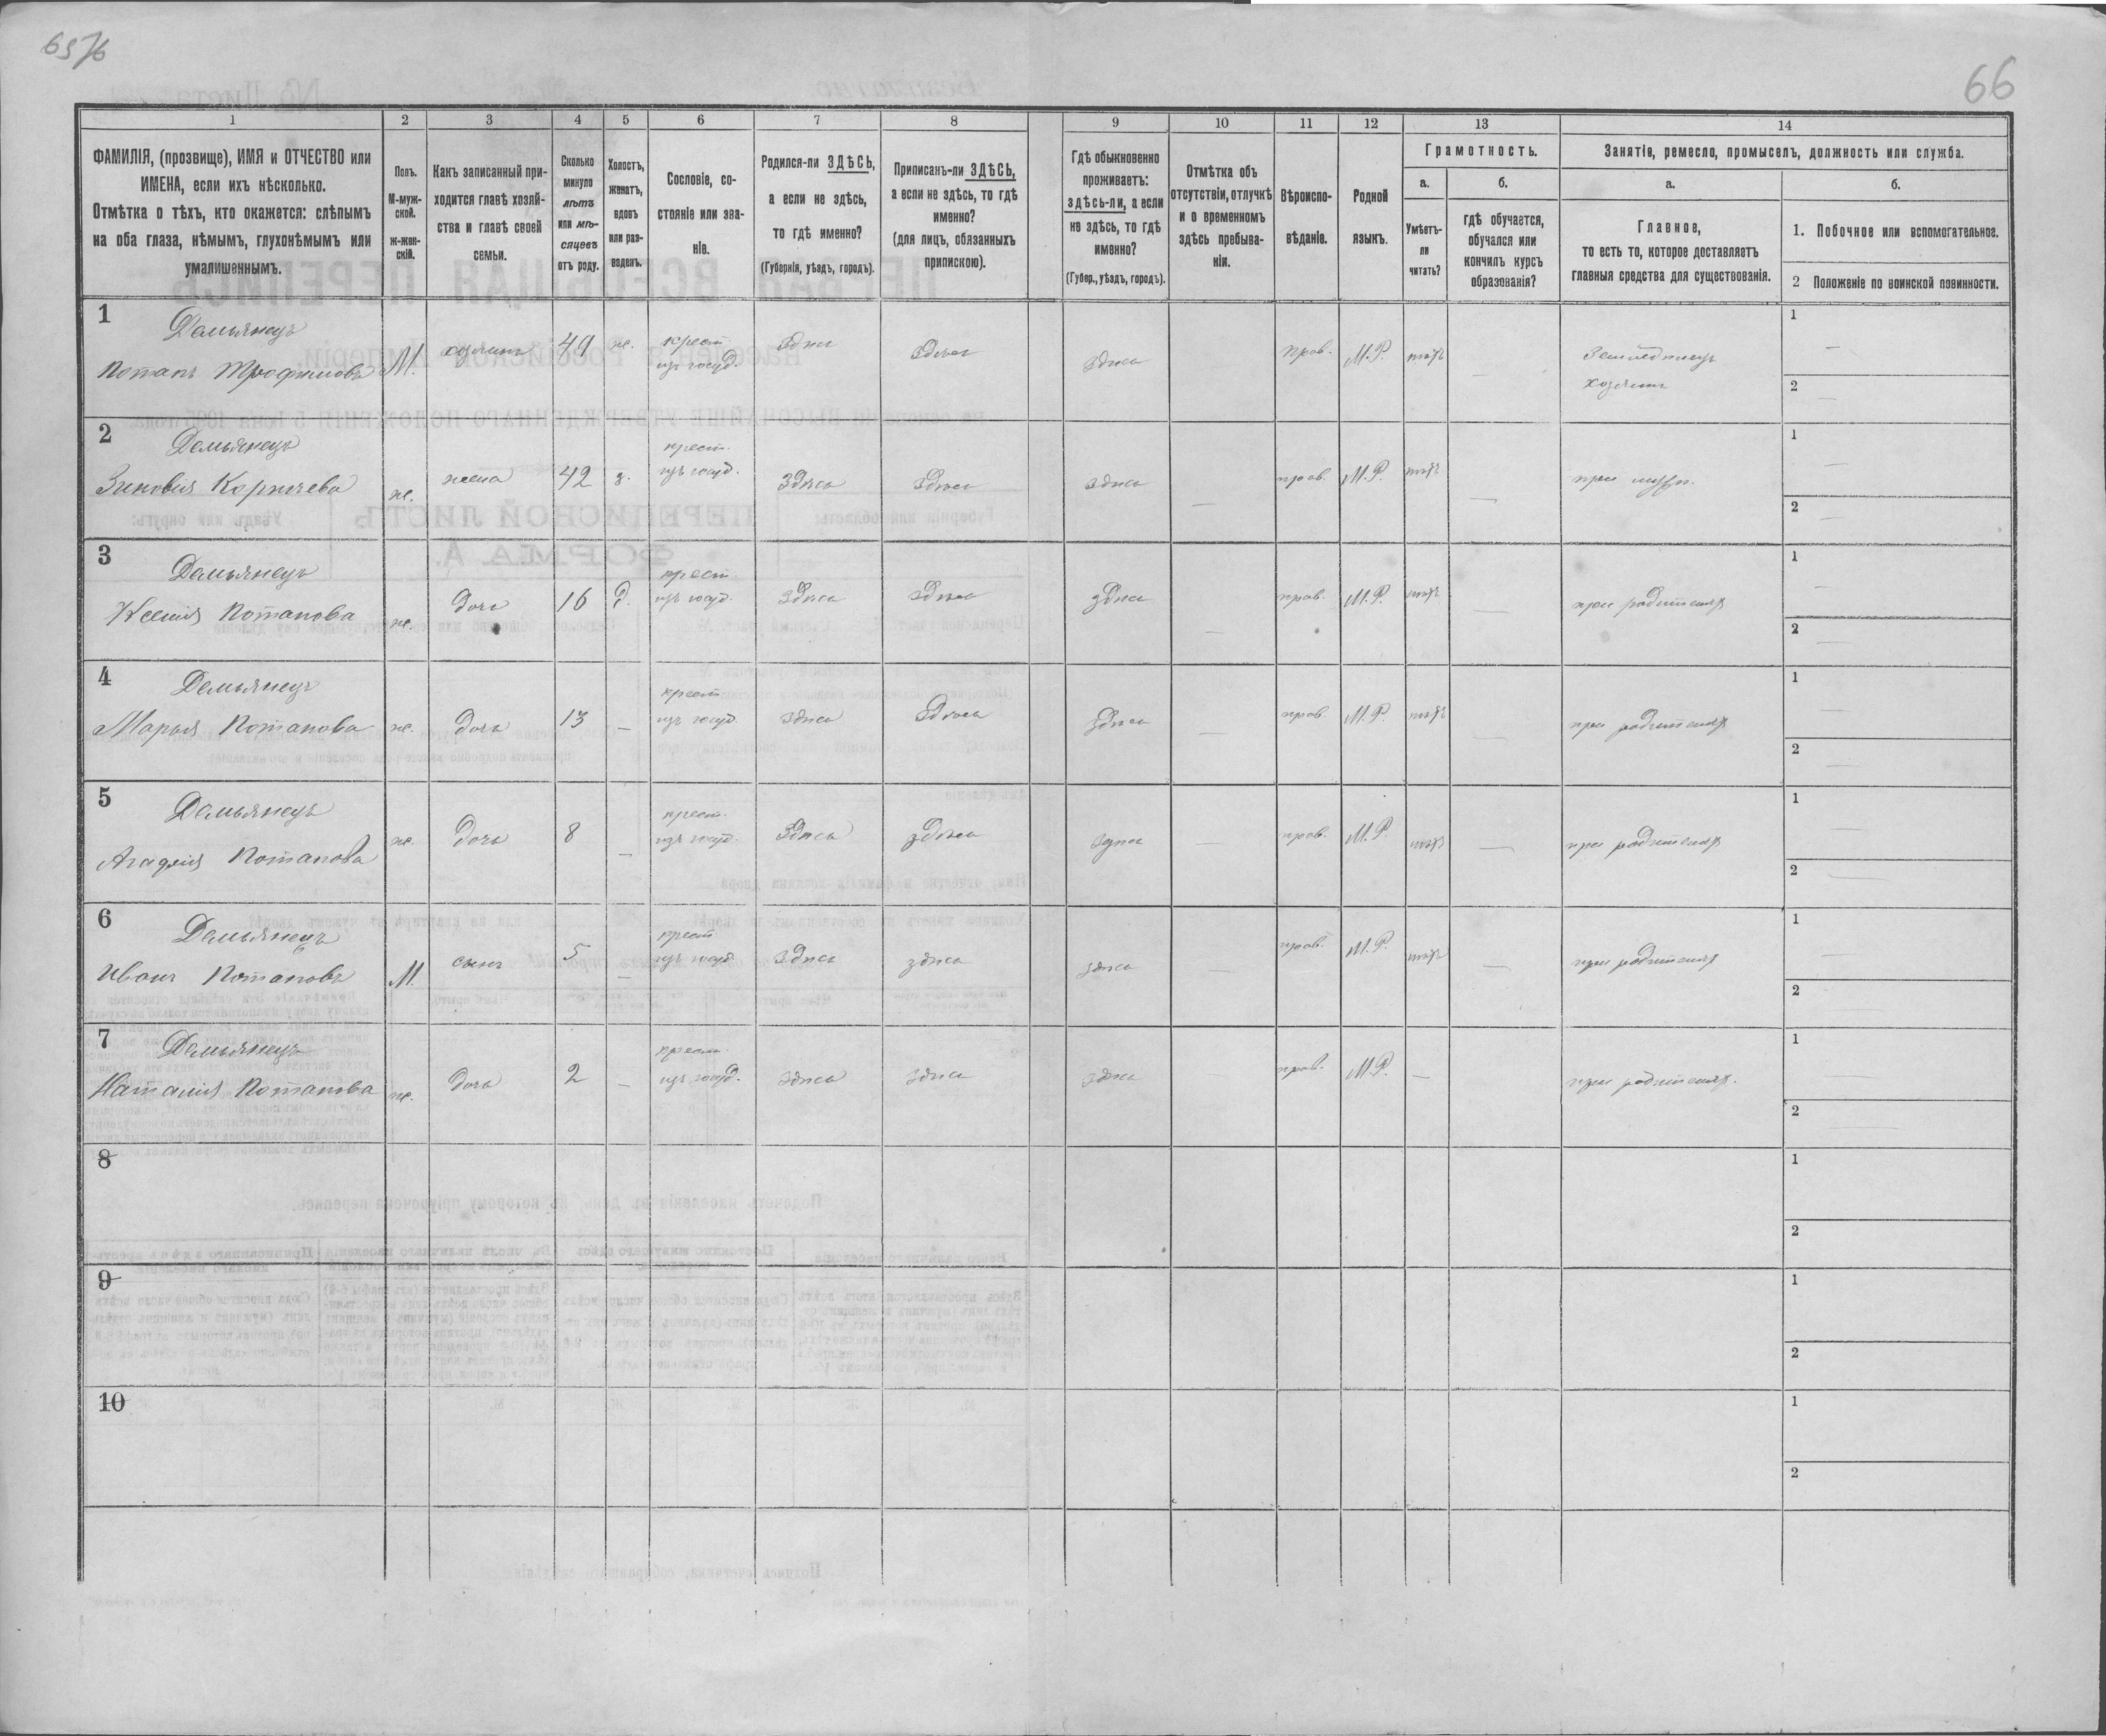 6576
66
1 2 3 4 5 6 7 8 9 10 11 12 13 14
ФАМИЛІЯ, (прозвище), ИМЯ и ОТЧЕСТВО или
ИМЕНА, если ихъ нѣсколько.
Отмѣтка о тѣхъ, кто окажется: слѣпымъ
на оба глаза, нѣмымъ, глухонѣмымъ или
умалишеннымъ.
Полъ.
М-муж-
ской.
ж-жен-
скій.
Какъ записанный при-
ходится главѣ хозяй-
ства и главѣ своей
семьи.
Сколько
минуло
лѣтъ
или мѣ-
сяцевъ
отъ роду.
Холостъ,
женатъ,
вдовъ
или раз-
веденъ.
Сословіе, со-
стояніе или зва-
ніе.
Родился-ли ЗДѢСЬ,
а если не здѣсь,
то гдѣ именно?
(Губернія, уѣздъ, городъ).
Приписанъ-ли ЗДѢСЬ,
а если не здѣсь, то гдѣ
именно?
(для лицъ, обязанныхъ
припискою).
Гдѣ обыкновенно
проживаетъ:
здѣсь-ли, а если
не здѣсь, то гдѣ
именно?
(Губер., уѣздъ, городъ).
Отмѣтка объ
отсутствіи, отлучкѣ
и о временномъ
здѣсь пребыва-
ніи.
Вѣроиспо-
вѣданіе.
Родной
языкъ.
Грамотность.
а.
Умѣетъ-
ли
читать?
б.
гдѣ обучается,
обучался или
кончилъ курсъ
образованія?
Занятіе, ремесло, промыселъ, должность или служба.
а.
Главное,
то есть то, которое доставляетъ
главныя средства для существованія.
б.
1. Побочное или вспомогательное.
2 Положеніе по воинской повинности.
1 Демьянецъ
Потапъ Трофимовъ М. хозяинъ 49 ж. крест. изъ госуд. здѣсь здѣсь здѣсь прав. М.Р. нѣтъ — Земледѣлецъ хозяинъ
1 —
2 —
2 Демьянецъ
Зиновія Корнѣева ж. жена 42 з. крест. изъ госуд. здѣсь здѣсь здѣсь — прав. М.Р. нѣтъ — при мужѣ.
1 —
2 —
3 Демьянецъ
Ксенія Потапова ж. дочь 16 д. крест. изъ госуд. здѣсь здѣсь здѣсь — прав. М.Р. нѣтъ — при родителях
1 —
2 —
4 Демьянецъ
Марья Потапова ж. дочь 13 — крест. изъ госуд. здѣсь здѣсь здѣсь — прав. М.Р. нѣтъ — при родителях
1 —
2 —
5 Демьянецъ
Агафія Потапова ж. дочь 8 — крест. изъ госуд. здѣсь здѣсь здѣсь — прав. М.Р. нѣтъ — при родителях
1 —
2 —
6 Демьянецъ
Иванъ Потаповъ М. сынъ 5 — крест. изъ госуд. здѣсь здѣсь здѣсь — прав. М.Р. нѣтъ — при родителях
1 —
2 —
7 Демьянецъ
Наталія Потапова ж. дочь 2 — крест. изъ госуд. здѣсь здѣсь здѣсь прав. М.Р. — при родителях.
1 —
2 —
8
1
2
9
1
2
10
1
2